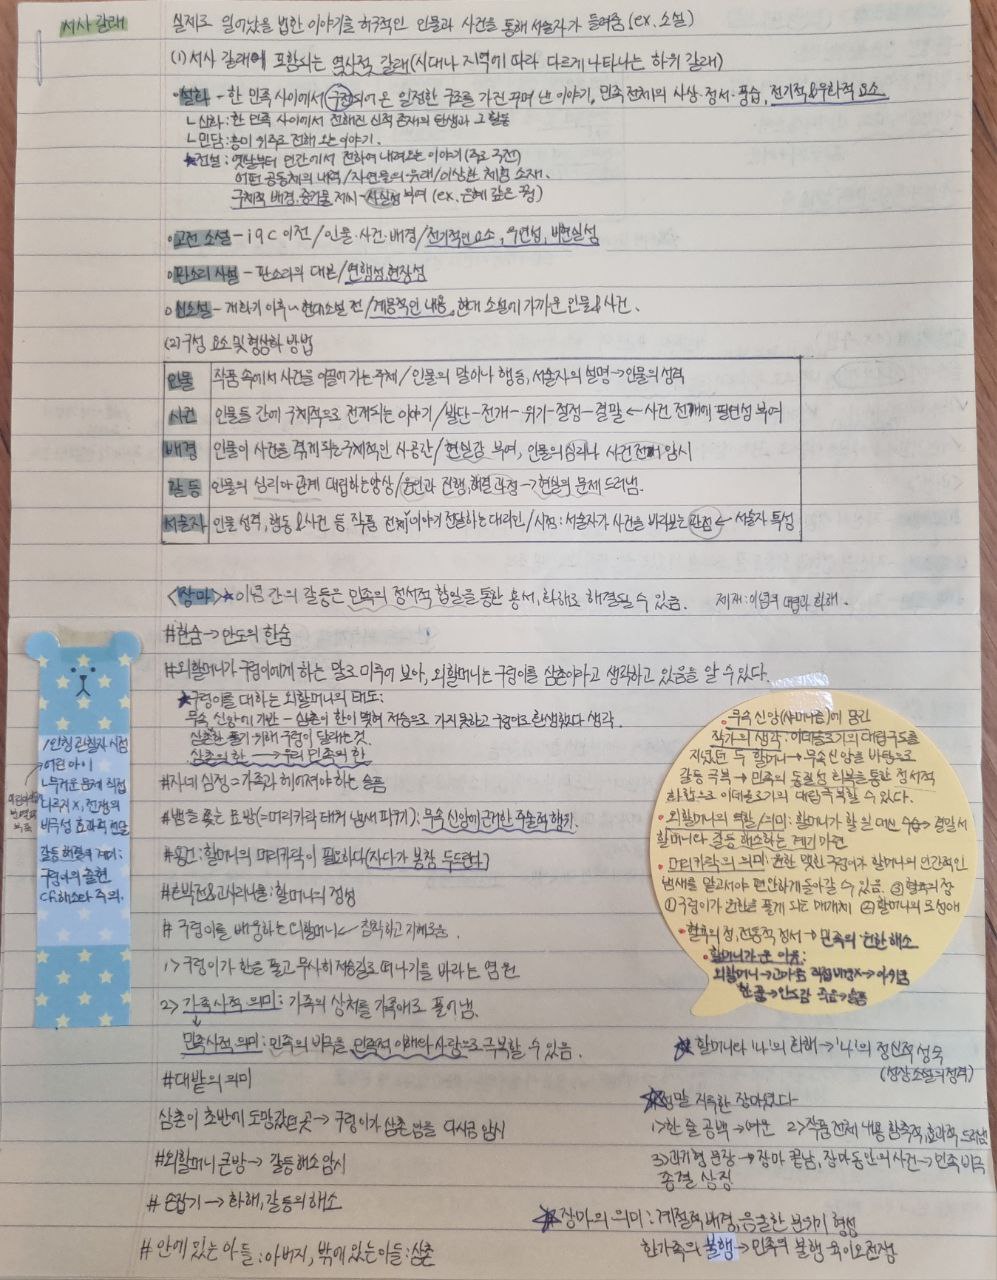 서사 갈래
실제로 일어났을 법한 이야기를 허구적인 인물과 사건을 통해 서술자가 들려줌 (ex. 소설)
(1) 서사 갈래에 포함되는 역사적 갈래(시대나 지역에 따라 다르게 나타나는 하위 갈래)
설화 - 한 민족 사이에서 구전되어 온 일정한 구조를 가진 꾸며 낸 이야기, 민족 전체의 사상·정서·풍습, 전기적&우화적 요소
ㄴ신화: 한 민족 사이에서 전해진 신적 존재의 탄생과 그 활동
ㄴ민담: 흥미 위주로 전해 오는 이야기.
★전설: 옛날부터 민간에서 전하여 내려오는 이야기 (주로 구전)
어떤 공동체의 내력/자연물의 유래/이상한 체험 소재.
구체적 배경, 증거물 제시 - 사실성 부여 (ex. 은혜 갚은 꿩)
고전 소설 - 19C 이전/인물·사건·배경/전기적인 요소, 우연성, 비현실성
판소리 사설 - 판소리의 대본/연행성, 현장성
신소설 - 개화기 이후~현대소설 전/계몽적인 내용, 현대 소설에 가까운 인물&사건.
(2) 구성 요소 및 형상화 방법
인물 작품 속에서 사건을 이끌어 가는 주체/인물의 말이나 행동, 서술자의 설명→인물의 성격
사건 인물들 간에 구체적으로 전개되는 이야기/발단-전개-위기-절정-결말 ← 사건 전개에 필연성 부여
배경 인물이 사건을 겪게 되는 구체적인 시공간/현실감 부여, 인물의 심리나 사건 전개 암시
갈등 인물의 심리와 관계 대립하는 양상/원인과 진행, 해결 과정→현실의 문제 드러냄.
서술자 인물 성격, 행동&사건 등 작품 전체 이야기 전달하는 대리인/시점: 서술자가 사건을 바라보는 관점 ← 서술자 특성
<장마>★이념 간의 갈등은 민족의 정서적 합일을 통한 용서, 화해로 해결될 수 있음. 제재: 이념의 대립과 화해.
#한숨→안도의 한숨
#외할머니가 구렁이에게 하는 말로 미루어 보아, 외할머니는 구렁이를 삼촌이라고 생각하고 있음을 알 수 있다.
★구렁이를 대하는 외할머니의 태도:
무속 신앙에 기반 - 삼촌이 한이 맺혀 저승으로 가지 못하고 구렁이로 환생했다 생각.
삼촌 한 풀기 위해 구렁이 달래는 것.
삼촌의 한 → 우리 민족의 한
#자네 심정 = 가족과 헤어져야 하는 슬픔
#뱀을 쫓는 묘방(=머리카락 태워 냄새 피우기): 무속 신앙에 근거한 주술적 행위.
#용건: 할머니의 머리카락이 필요하다(자다가 봉창 두드린다)
#호박전&고사리나물: 할머니의 정성
# 구렁이를 배웅하는 외할머니 ← 침착하고 지혜로움.
1> 구렁이가 한을 풀고 무사히 저승길로 떠나기를 바라는 염원
2> 가족사적 의미: 가족의 상처를 가족애로 풀어냄.
↓
민족사적 의미: 민족의 비극을 민족적 이해와 사랑으로 극복할 수 있음.
#대밭의 의미
삼촌이 초반에 도망갔던 곳→구렁이가 삼촌 임을 다시금 암시
#외할머니 큰방→갈등 해소 암시
# 손잡기→화해, 갈등의 해소
# 안에 있는 아들: 아버지, 밖에 있는 아들: 삼촌
1인칭 관찰자 시점
어린 아이
→무거운 문제 직접
다루지 X, 전쟁의
비극성 효과적 전달
갈등 해결의 계기:
구렁이의 출현
cf. 해소다 주의.
무속 신앙(샤머니즘)에 공감
작가의 생각: 이데올로기의 대립구도를
지녔던 두 할머니→무속신앙을 바탕으로
갈등 극복→민족의 동질성 회복을 통한 정서적
화합으로 이데올로기의 대립 극복할 수 있다.
외할머니의 역할/의미: 할머니가 할 일 대신 수습→결말서
할머니와 갈등 해소하는 계기 마련
머리카락의 의미: 원한 맺힌 구렁이가 할머니의 인간적인
냄새를 맡고서야 편안하게 돌아갈 수 있음. ③혈육의 정
①구렁이가 원한을 풀게 되는 매개체 ②할머니의 모성애
혈육의 정, 전통적 정서→민족의 원한 해소
할머니가 운 이유:
외할머니→고마움 직접 배웅X→아쉬움
한 풂→안도감 죽음→슬픔
★할머니와 '나'의 화해→'나'의 정신적 성숙
(성장소설의 성격)
★정말 지루한 장마였다
1>한 줄 공백→여운 2>작품 전체 내용 함축적, 효과적 드러냄
3>과거형 문장→장마 끝남, 장마 동안의 사건→민족 비극
종결 상징
★장마의 의미: 계절적 배경, 음울한 분위기 형성
한 가족의 불행→민족의 불행 육이오전쟁